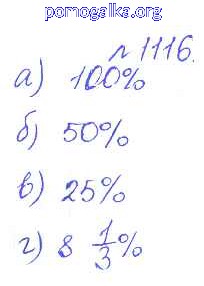 pomogalka.org
№ 1116.
а) 100%
б) 50%
в) 25%
г) 8 1/3 %